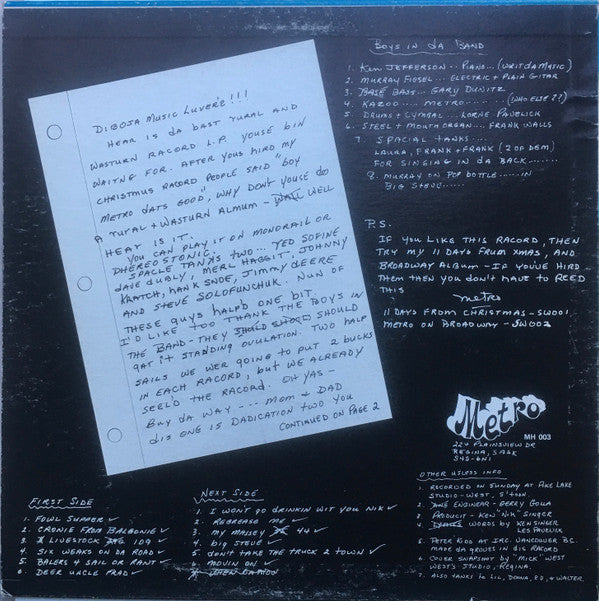 DIBOJA MUSIC LUVERE!!!
HEAR IS DA BAST RURAL AND
WASTURN RACORD L.P. YOUSE BIN
WAITNG FOR. AFTER YOUS HIRD MY
CHRISTMUS RACORD PEOPLE SAID "BOY
METRO DATS GOOD", WHY DON'T YOUSE DO
A RURAL + WASTURN ALMUM - WALL WELL
HEAR IS IT.
YOU CAN PLAY IT ON MONORAIL OR
DHEREOSTONIC.
SPACLE TANKS TWO... YED SOFINE
DAVE DUBLY, MERL HAGGIT, JOHNNY
KRATCH, HANK SNOE, JIMMY DEERE
AND STEVE SOLOFUNCHUK. NUN OF
THESE GUYS HALP'D ONE BIT.
I'D LIKE TOO THANK THE BOYS IN
THE BAND - THEY SHOULD SHOULD
GAT IT STANDING OVULATION. TWO HALP
SAILS WE WER GOING TO PUT 2 BUCKS
IN EACH RACORD, BUT WE ALREADY
SEEL'D THE RACORD. OH YAS -
BUY DA WAY --- MOM & DAD
DIS ONE IS DADICATION TWO YOU
CONTINUED ON PAGE 2
BOYS IN DA BAND
1. KEN JEFFERSON... PIANO... (WRIT DA MUSIC)
2. MURRAY FIGSEL... ELECTRIC + PLAIN GITAR
3. BASE BASS... GARY DUNITZ
4. KAZOO.... METRO...... (WHO ELSE??)
5. DRUMS + CYMBAL... LORNE PAVELICK
6. STEEL + MOUTH ORGAN... FRANK WALLS
7. SPACIAL TANKS....
LAURA, FRANK + FRANK (2 OF DEM)
FOR SINGING IN DA BACK.......
8. MURRAY ON POP BOTTLE.....IN
BIG STEVE.....
P.S.
IF YOU LIKE THIS RACORD, THEN
TRY MY 11 DAYS FRUM XMAS, AND
BROADWAY ALBUM - IF YOU'VE HIRD
THEM THEN YOU DON'T HAVE TO REED
THIS
METRO
11 DAYS FROM CHRISTMAS - SW001
METRO ON BROADWAY - SW002
Metro
MH 003
224 PLAINSVIEW DR
REGINA, SASK
S4S-6N1
FIRST SIDE
1. FOWL SUMMER ✓
2. CRONIE FROM BALGONIE ✓
3. LIVESTOCK 109 ✓
4. SIX WEAKS ON DA ROAD ✓
5. BALERS 4 SAIL OR RANT ✓
6. DEER UNCLE FRAD ✓
NEXT SIDE
1. I WON'T GO DRINKIN WIT YOU NIK ✓
2. REGREASE ME ✓
3. MY MASSEY 44 ✓
4. BIG STEVE ✓
5. DON'T TAKE THE TRUCK 2 TOWN ✓
6. MOVIN ON ✓
OTHER USLFSS INFO
1. RECORDED ON SUNDAY AT PIKE LAKE
STUDIO - WEST, S'TOON.
2. ENGINEAR - GERRY GOLLA
PRODUCIT - KEN "NIK" SINGER
4. WORDS BY KEN SINGER
LES PAVLICK
5. PETER KIDS AT I.R.C. VANCOUVER B.C.
MADE DA GROOVES IN DIS RACORD
6. COVER SNAPSHOT BY "MICK" WEST
WEST'S STUDIO, REGINA.
7. ALSO THANKS TO LIL, DONNA, ED, + WALTER